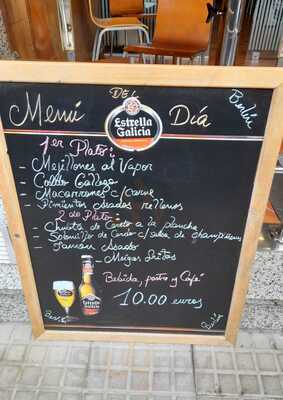 Menú DEL Día
Berlin
Estrella
Galicia
1er Plato:
- Mejillones al Vapor
- Caldo Gallego
- Macarrones c/carne
- Pimientos Asados rellenos
2 do Plato:
- Chuleta de Cerdo a la plancha
- Solomillo de Cerdo c/salsa de champiñones
- Jamon Asado
- Meigas fritas
Bebida, postre y Café
10.00 euros